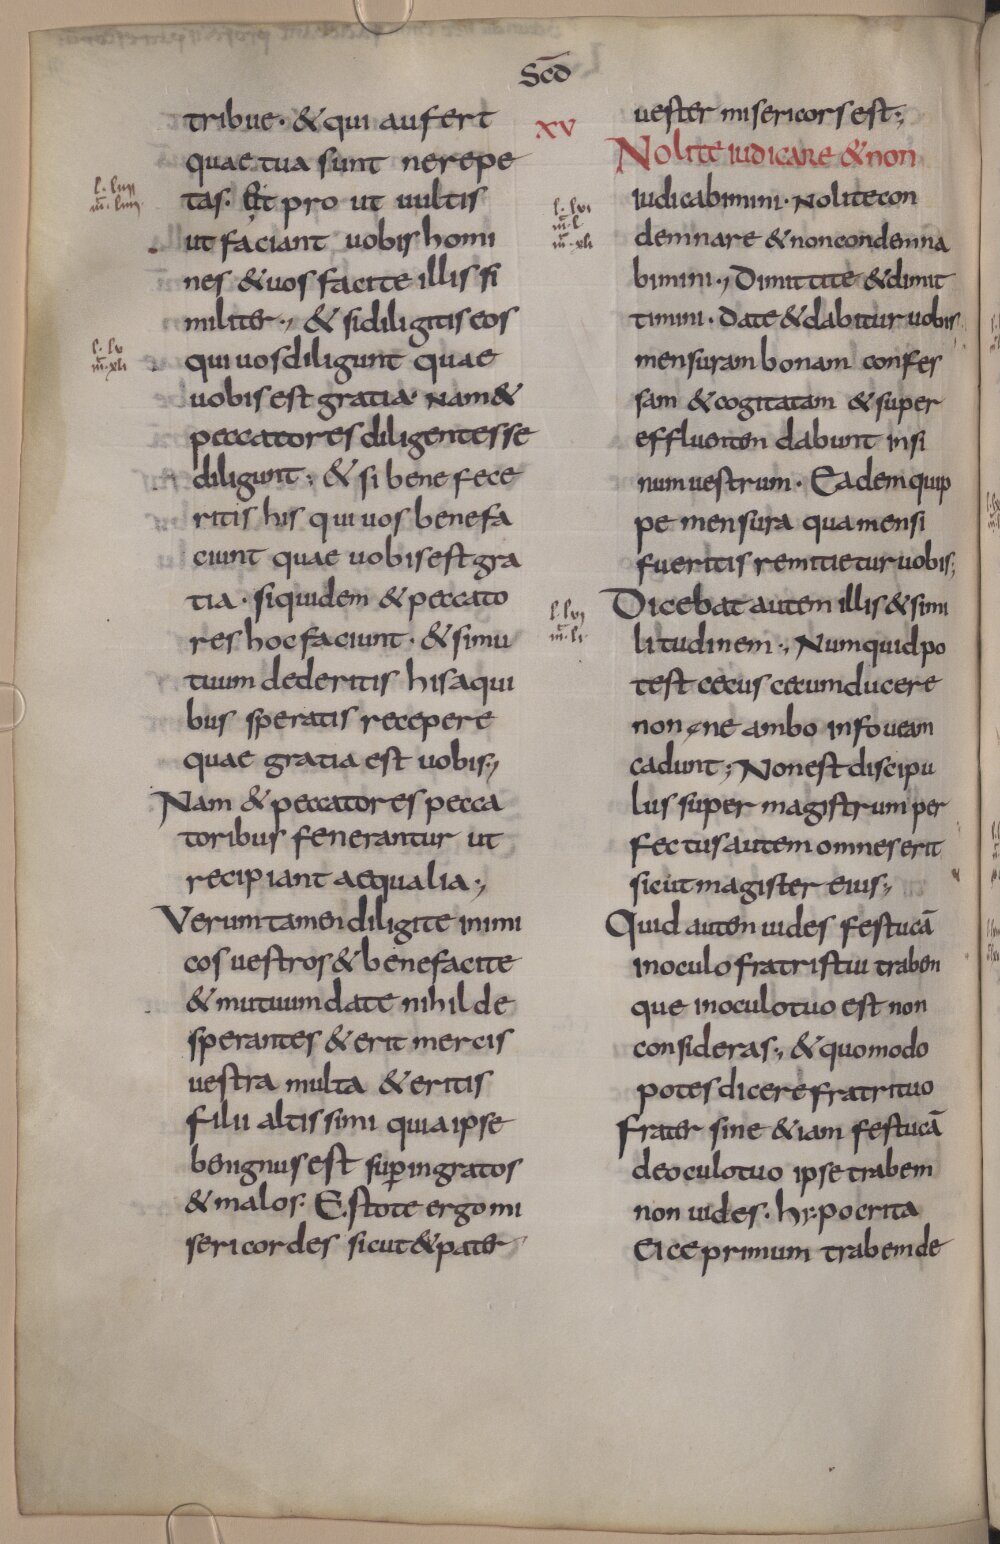 Scd̄
tribue · & qui aufert
quae tua sunt nerepe
tas · Et pro ut uultis
l · lııı
m̄ · lıııı
ut faciant uobis homi
nes & uos facite illis si
militer ·, & si diligitis eos
qui uos diligunt quae
l · lv
m̄ · xlı
uobis est gratia · Nam &
peccatores diligentes se
diligunt ; & si bene fece
ritis his qui uos benefa
ciunt quae uobis est gra
tia · siquidem & peccato
res hoc faciunt · & si mu
tuum dederitis his a qui
bus speratis recepere
quae gratia est uobis ;,
Nam & peccatores pecca
toribus fenerantur ut
recipiant aequalia ·,
Verumtamen diligite inimi
cos uestros & benefacite
& mutuum date nihil de
sperantes & erit mercis
uestra multa & eritis
filii altissimi quia ipse
benignus est sup̄ ingratos
& malos · Estote ergo mi
sericordes sicut & pater
uester misericors est ;,
xv
Nolite iudicare & non
iudicabimini · Nolite con
l · lvı
m̄ · l
m̄ · xlı
demnare & non condemna
bimini ·, Dimittite & dimit
timini · Date & dabitur uobis
mensuram bonam confer
sam & cogitatam & super
effluenten dabunt in si
num uestrum · Eadem quip
pe mensura qua mensi
fueritis remitietur uobis ;
Dicebat autem illis & simi
l · lvı
m̄ · lı
litudinem ·, Numquid po
test cecus cecum ducere
nonne ambo in foueam
cadunt ; Non est discipu
lus super magistrum per
fectus autem omnes erit
sicut magister eius ;,
Quid auten uides festucā
in oculo fratris tui traben
que in oculo tuo est non
consideras ·, & quomodo
potes dicere fratri tuo
frater sine & iam festucā
de oculo tuo ipse trabem
non uides · hypocrita
Eice primum trabem de